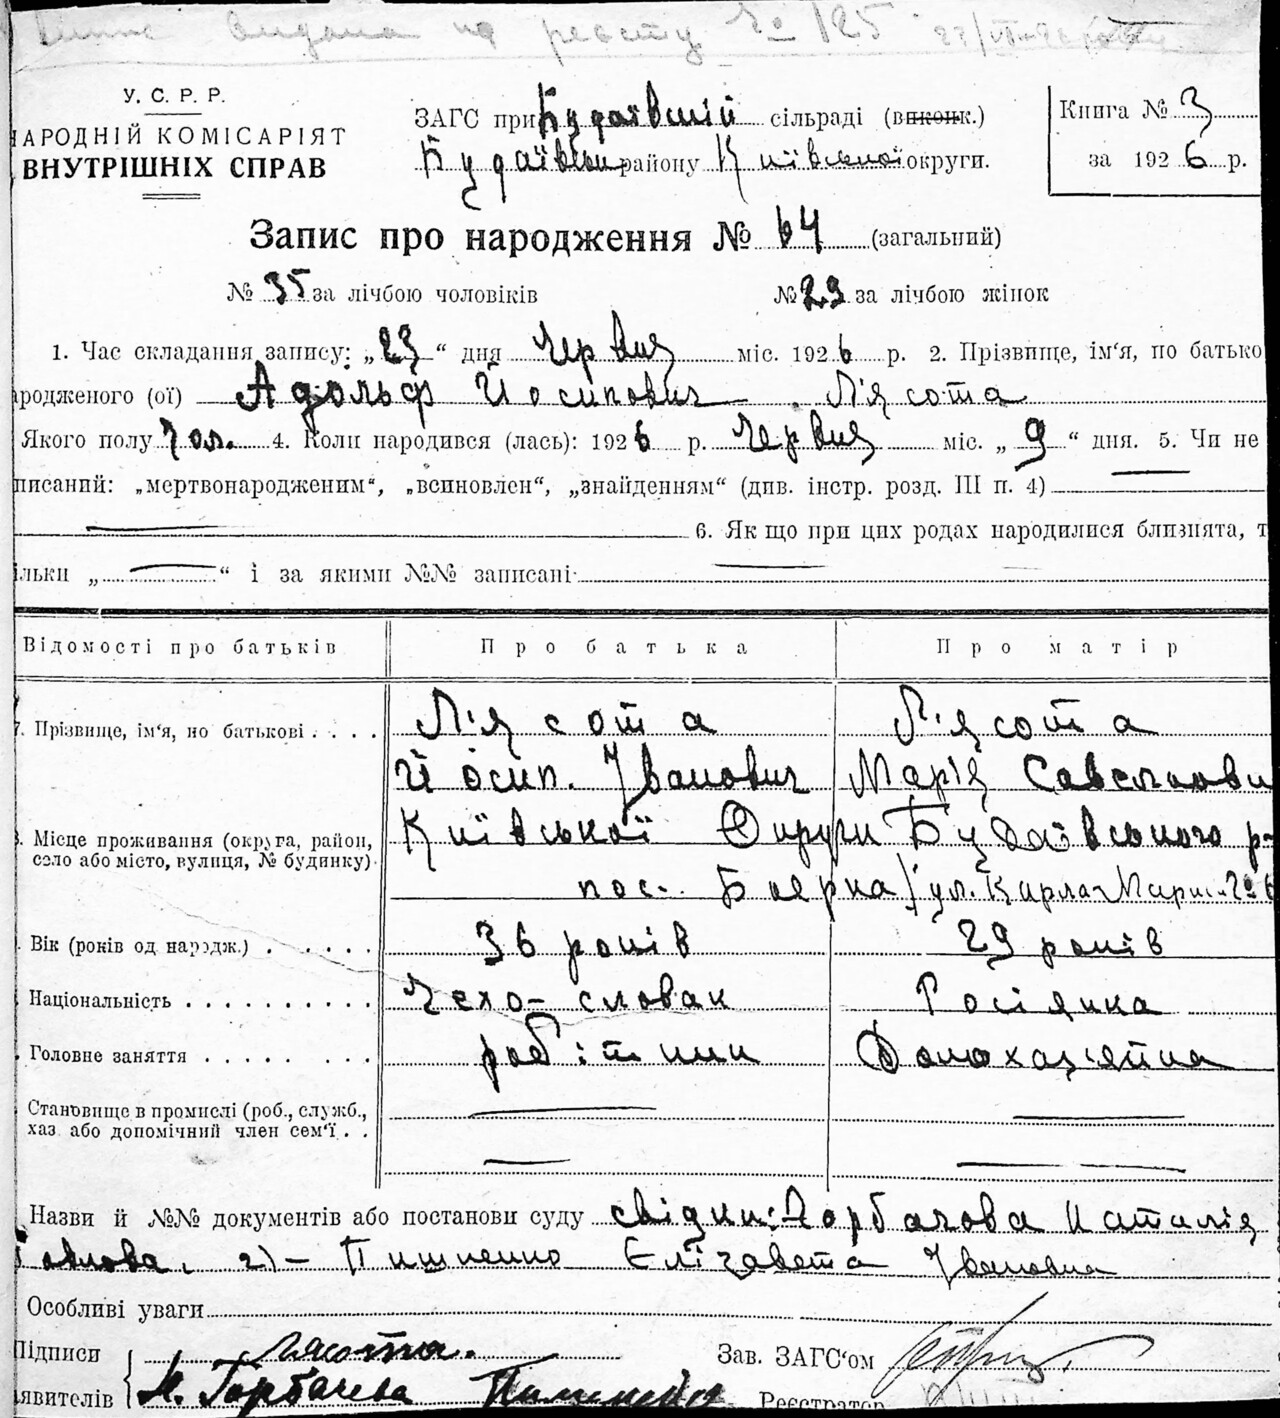 видана по реєстру № 125
У. С. Р. Р.
НАРОДНІЙ КОМІСАРІЯТ
ВНУТРІШНІХ СПРАВ
ЗАГС при Будаївській сільраді (виконк.)
Будаївськ району Київської округи.
Книга № 3
за 1926 р.
Запис про народження № 64 (загальний)
№ 35 за лічбою чоловіків № 29 за лічбою жінок
1. Час складання запису: „23“ дня Червня міс. 1926 р. 2. Прізвище, ім‘я, по батько
родженого (ої) Адольф Йосипович Л'ясота
Якого полу Чол. 4. Коли народився (лась): 1926 р. Червня міс. „9“ дня. 5. Чи не
писаний: „мертвонародженим“, „всиновлен“, „знайденням“ (див. інстр. розд. III п. 4)
6. Як що при цих родах народилися близнята, т
льки „ “ і за якими №№ записані
Відомості про батьків Про батька Про матір
7. Прізвище, ім‘я, по батькові Л'ясота Л'ясота
Йосип. Іванович Марія
8. Місце проживання (округа, район, село або місто, вулиця, № будинку) Київської Округи Будаївського р-
пос. Боярка / ул. Карла-Маркса № 6
Вік (років од народж.) 36 років 29 років
Національність Чехо-словак Росіянка
Головне заняття робітник Домохазяйка
Становище в промислі (роб., служб.,
хаз або допомічний член сем‘ї
Назви й №№ документів або постанови суду свідки: Горбачова Наталія
2) – Пишненко Єлізавета Івановна
Особливі уваги
Підписи Лясота.
явителів Н. Горбачева
Зав. ЗАГС‘ом
Реєстратор